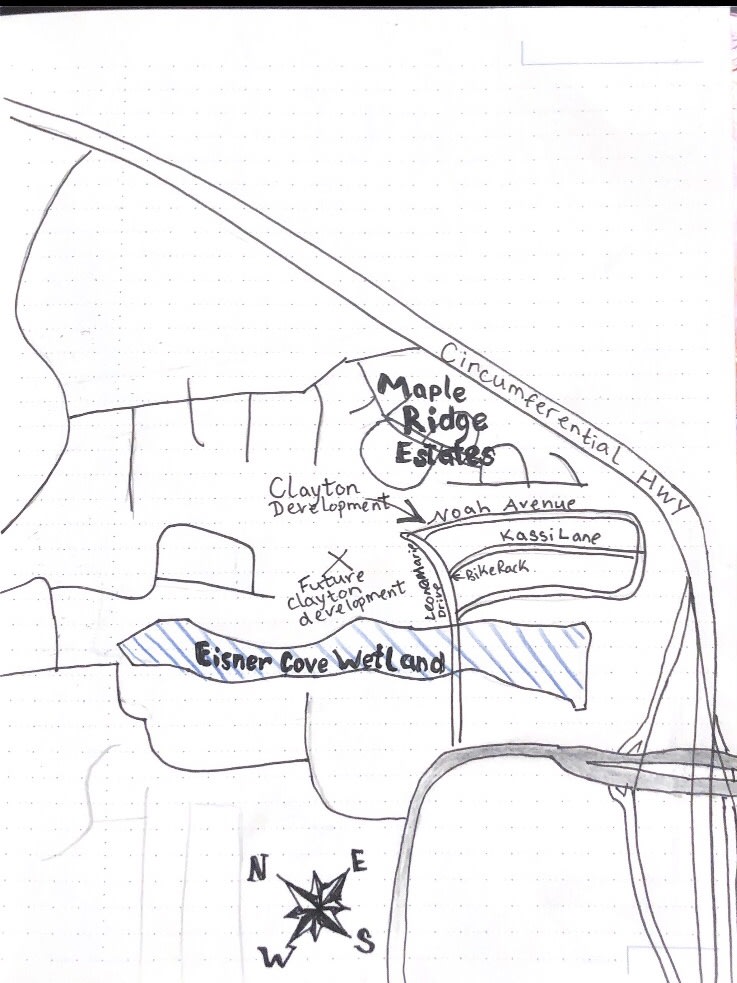 Circumferential HWY
Maple
Ridge
Estates
Clayton
Development
Noah Avenue
Kassi Lane
BikeRack
Leona Marie
Drive
Future
clayton
development
Eisner Cove Wetland
N E
W S